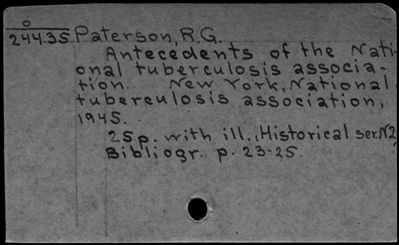 O
24435 Paterson, R.G.
Antecedents of the Nati-
onal tuberculosis associa-
tion. New York, National
tuberculosis association,
1945.
25p. with ill., Historical ser. N2
Bibliogr. p. 23-25.